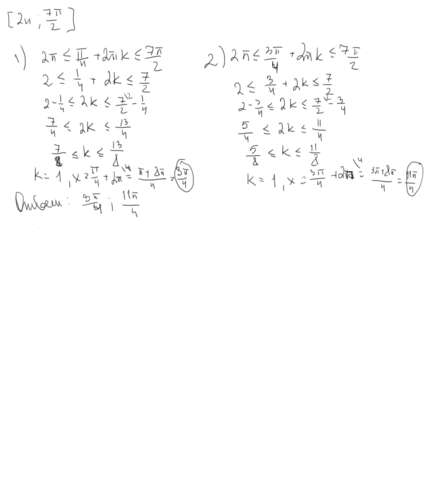 [2π, 7π/2]
1) 2π ≤ π/4 + 2πk ≤ 7π/2
2 ≤ 1/4 + 2k ≤ 7/2
2 - 1/4 ≤ 2k ≤ 7/2 - 1/4
7/4 ≤ 2k ≤ 13/4
7/8 ≤ k ≤ 13/8
k = 1, x = π/4 + 2π = π + 8π/4 = 9π/4
2) 2π ≤ 3π/4 + 2πk ≤ 7π/2
2 ≤ 3/4 + 2k ≤ 7/2
2 - 3/4 ≤ 2k ≤ 7/2 - 3/4
5/4 ≤ 2k ≤ 11/4
5/8 ≤ k ≤ 11/8
k = 1, x = 3π/4 + 2π = 3π + 8π/4 = 11π/4
Ответ: 9π/4 ; 11π/4